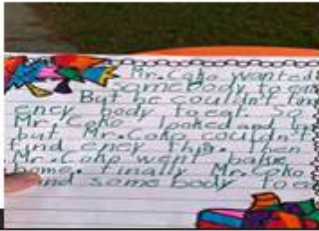 Mr. Coko wanted
somebody to eat
But he couldn't find
eney body to eat. So
Mr. Coko looked and
but Mr. Coko couldn't
find eney this. Then
Mr. Coko went bake
home. Finally Mr. Coko
some body to ea